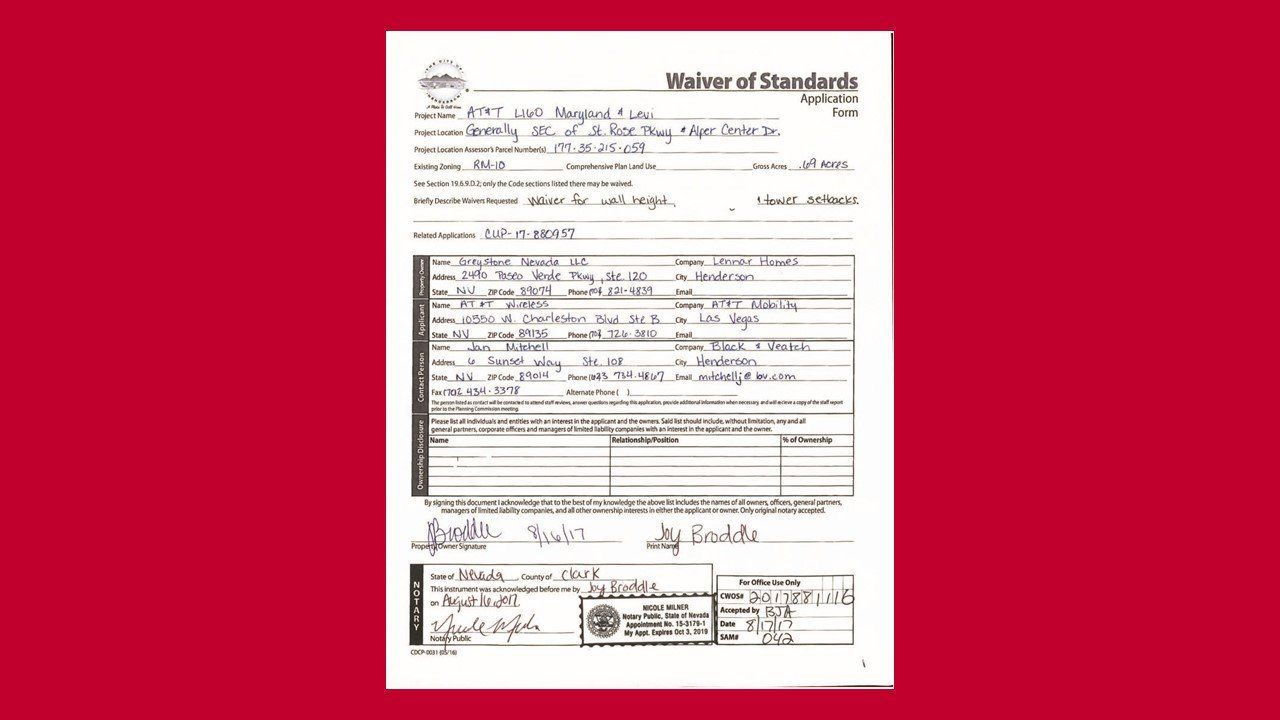 THE CITY OF
HENDERSON
A Place To Call Home
Waiver of Standards
Application
Form
Project Name AT&T L160 Maryland & Levi
Project Location Generally SEC of St. Rose Pkwy & Alper Center Dr.
Project Location Assessor's Parcel Number(s) 177-35-215-059
Existing Zoning RM-10 Comprehensive Plan Land Use Gross Acres .69 Acres
See Section 19.6.9.D.2; only the Code sections listed there may be waived.
Briefly Describe Waivers Requested Waiver for wall height, & tower setbacks.
Related Applications CUP-17-880957
Property Owner
Name Greystone Nevada LLC Company Lennar Homes
Address 2490 Paseo Verde Pkwy, Ste. 120 City Henderson
State NV ZIP Code 89074 Phone (702) 821-4839 Email
Applicant
Name AT&T Wireless Company AT&T Mobility
Address 10550 W. Charleston Blvd Ste B City Las Vegas
State NV ZIP Code 89135 Phone (702) 726-3810 Email
Contact Person
Name Jan Mitchell Company Black & Veatch
Address 6 Sunset Way Ste. 108 City Henderson
State NV ZIP Code 89014 Phone (623 734-4867 Email mitchellj@bv.com
Fax (702 434-3378 Alternate Phone ( )
The person listed as contact will be contacted to attend staff reviews, answer questions regarding this application, provide additional information when necessary, and will recieve a copy of the staff report
prior to the Planning Commission meeting.
Ownership Disclosure
Please list all individuals and entities with an interest in the applicant and the owners. Said list should include, without limitation, any and all
general partners, corporate officers and managers of limited liability companies with an interest in the applicant and the owner.
Name Relationship/Position % of Ownership
By signing this document I acknowledge that to the best of my knowledge the above list includes the names of all owners, officers, general partners,
managers of limited liability companies, and all other ownership interests in either the applicant or owner. Only original notary accepted.
JBroddle 8/16/17 Joy Broddle
Property Owner Signature Print Name
NOTARY
State of Nevada, County of Clark
This instrument was acknowledged before me by Joy Broddle
on August 16, 2017
Nicole Milner
Notary Public
NICOLE MILNER
Notary Public, State of Nevada
Appointment No. 15-3179-1
My Appt. Expires Oct 3, 2019
For Office Use Only
CWOS# 2017881116
Accepted by BJA
Date 8/17/17
SAM# 042
CDCP-0031 (05/16)